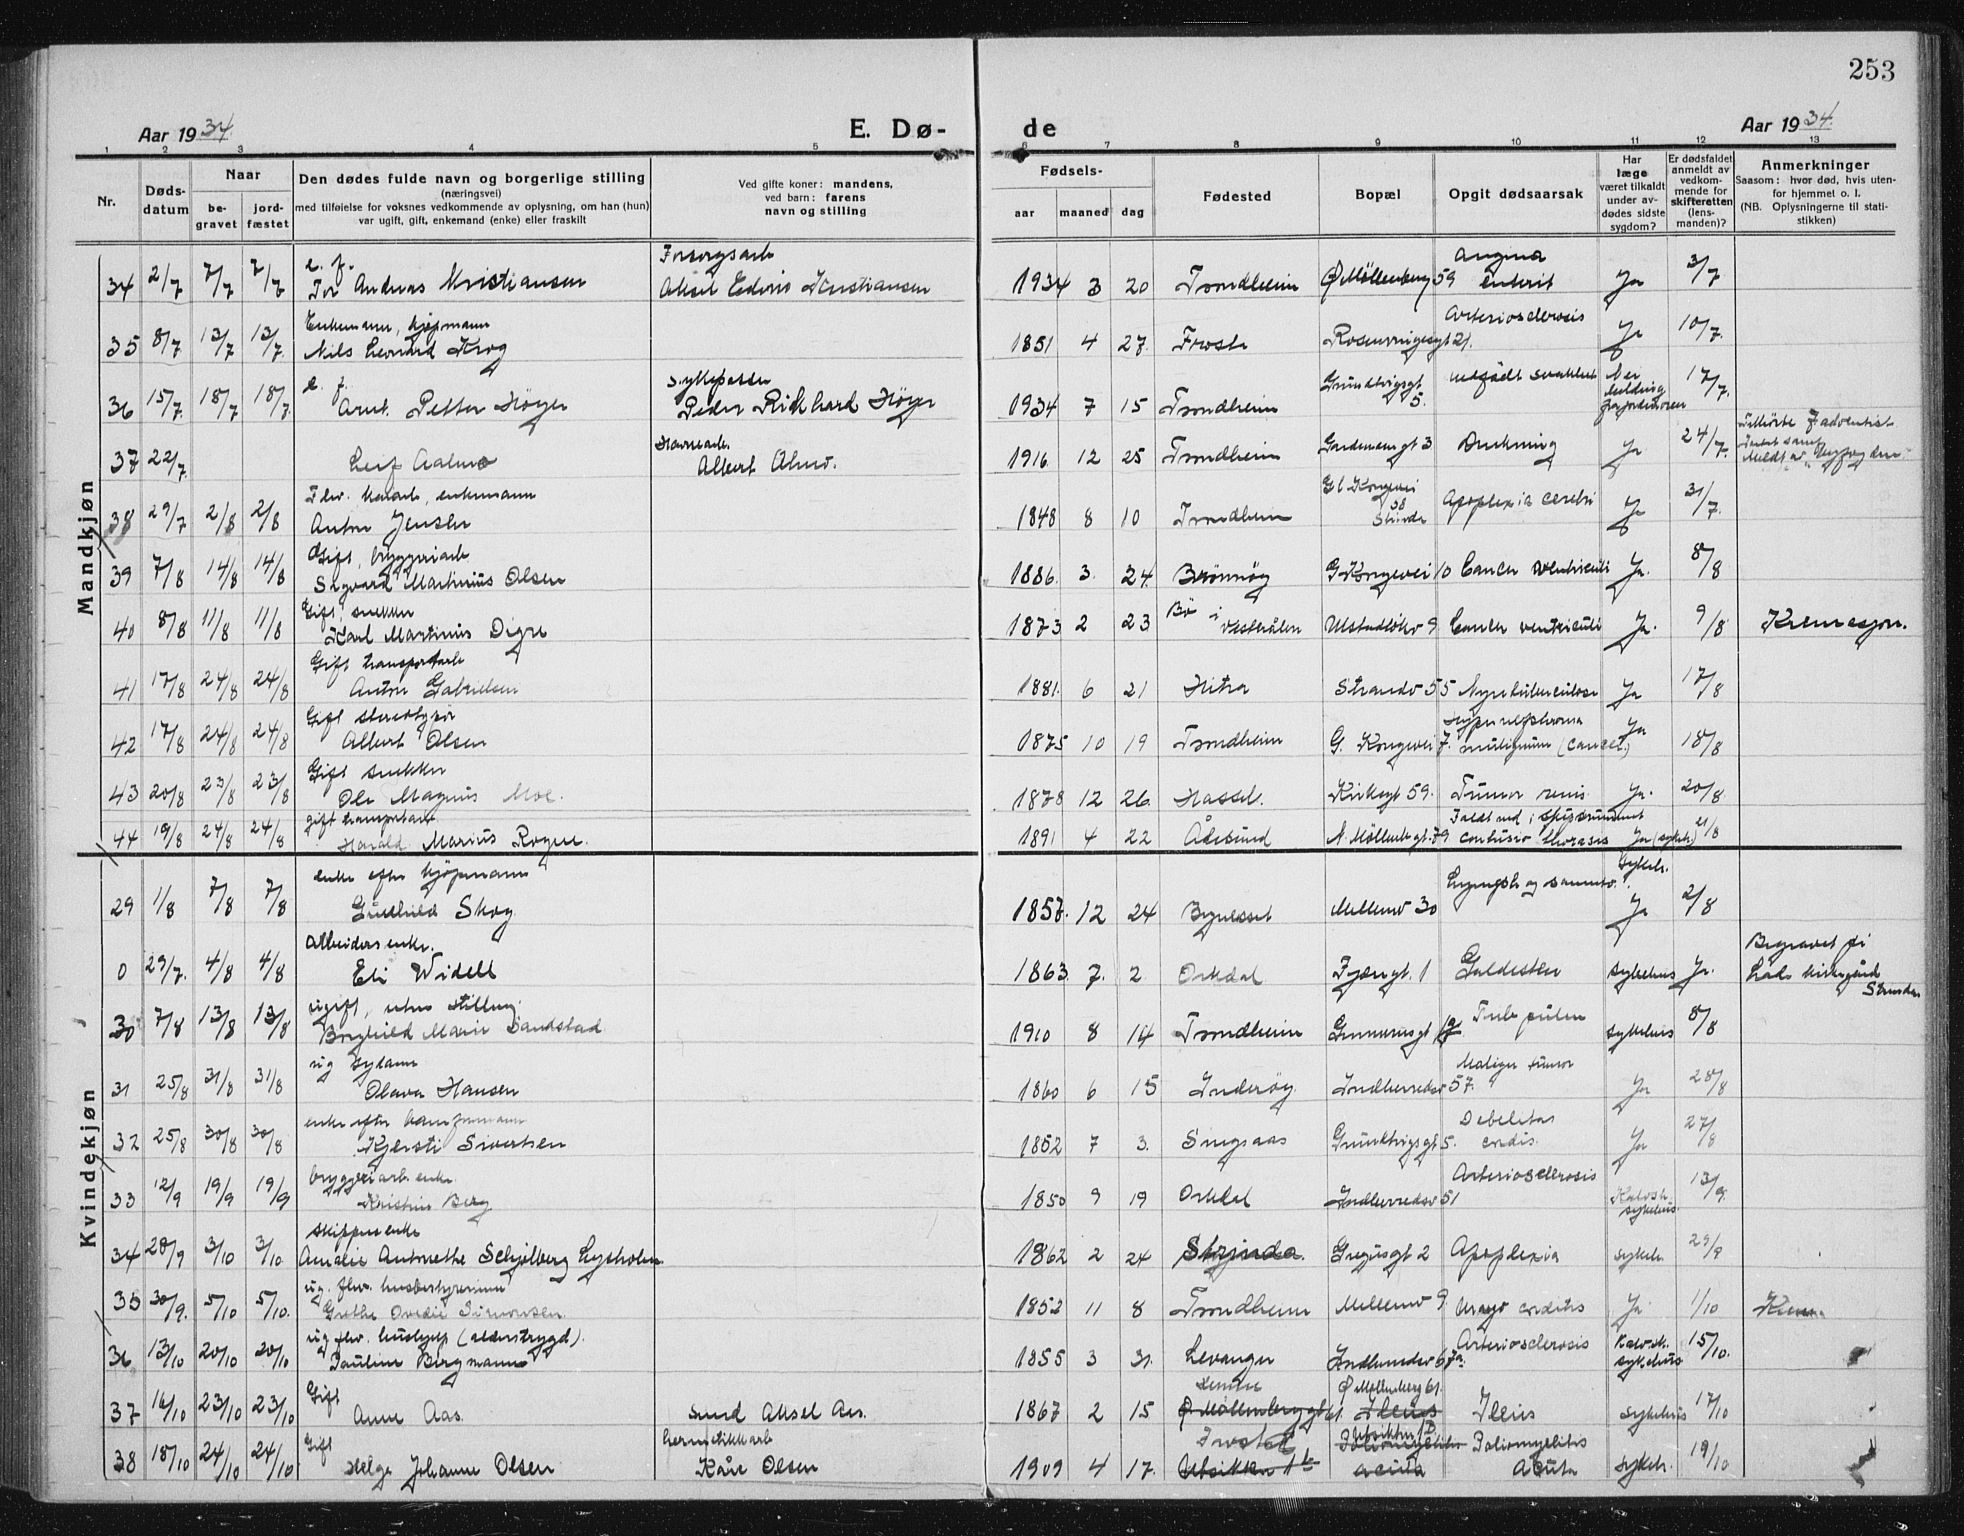 253
Aar 1934.
E. Dø-
de
Aar 1934.
1 2 3 4 5 6 7 8 9 10 11 12 13
Nr.
Døds-
datum
Naar
be-
gravet
jord-
fæstet
Den dødes fulde navn og borgerlige stilling
(næringsvei)
med tilføielse for voksnes vedkommende av oplysning, om han (hun)
var ugift, gift, enkemand (enke) eller fraskilt
Ved gifte koner: mandens,
ved barn: farens
navn og stilling
Fødsels-
aar maaned dag
Fødested
Bopæl
Opgit dødsaarsak
Har
læge
været tilkaldt
under av-
dødes sidste
sygdom?
Er dødsfaldet
anmeldt av
vedkom-
mende for
skifteretten
(lens-
manden)?
Anmerkninger
Saasom: hvor død, hvis uten-
for hjemmet o. l.
(NB. Oplysningerne til stati-
stikken)
Mandkjøn
e. f. Forsorgsarb Angina
34 2/7 7/7 7/7 Tor Andreas Kristiansen Aksel Edvin Kristiansen 1934 3 20 Trondheim Ø Möllenberg 59 Enterit Ja 3/7
Enkemann, kjøpmann Arteriosclerosis
35 8/7 13/7 13/7. Nils Leonard Krog 1851 4 27. Frosta Rosenvingesgt 21. Ja 10/7.
e. f. Sykepasser Grundtvigsgt medfödt svakhet
36 15/7. 18/7 18/7. Arnt Petter Höyer Peder Rikhard Höyer 1934 7 15 Trondheim 5. 17/7.
Havnearb. Tilhörte 7 adventist
37 22/7. Leif Aalmo Albert Almo. 1916 12 25 Trondheim Gardemoensgt 3 Drukning Ja 24/7.
Flv. havarb, enkemann Gl Kongevei
38 29/7 2/8 2/8 Anton Jensen 1848 8 10 Trondheim 58 Strinda Apoplexia cerebri Ja 31/7.
Gift, bryggeriarb
39 7/8 14/8 14/8 Sigvard Martinius Olsen 1886. 3. 24. Brönnöy G Kongevei 10 Cancer ventriculi Ja. 8/8
Gift, snekker Bö i
40 8/8 11/8 11/8 Karl Martinus Digre 1873 2 23 Vesterålen Ulstadløkv 9 Cancer ventriculi Ja. 9/8 Kremasjon.
Gift transportarb
41 17/8 24/8 24/8 Anton Gabrielsen 1881. 6 21 Hitra Strandv 55 Nyretuberculose Ja 17/8
Gift stereotypør
42 17/8 24/8 24/8 Albert Olsen 1875 10 19 Trondheim G. Kongevei 7. malignum (cancer) Ja 18/8
Gift snekker
43 20/8 23/8 23/8 Ole Magnus Moe. 1878 12 26. Hassel. Kirkegt 59. Tumor renis Ja. 20/8.
gift transportarb
44 19/8 24/8 24/8 Harald Marius Rogne. 1891 4 22 Ålesund N. Möllenbgt. 79 contusio thoracis Ja (sykeh.) 21/8
Kvindekjøn
enke efter kjøpmann Sykeh.
29 1/8 7/8 7/8 Gudhild Skog 1857. 12 24 Byneset Mellemv 30 Ja 2/8
Arbeiders enke. Begravet på
0 29/7. 4/8 4/8 Eli Widell 1863. 7. 2 Orkdal Fjæregt. 1 Galdesten sykehus Ja. Lade kirkegård
Strinda
ugift, uten stilling
30 7/8 13/8 13/8 Borghild Marie Sandstad 1910 8 14 Trondheim Gunnerusgt Tub. pulm sykehus 8/8
ug sydame Malign tumor
31 25/8 31/8 31/8 Olava Hansen 1860 6 15 Inderöy Indherredsv 57. Ja 28/8
enke efter banformann Debelitas
32 25/8 30/8 30/8 Kjersti Sivertsen 1852 7 3. Singsaas Grundtvigsgt 5. cordis. Ja 27/8
bryggeriarb. enke. Arteriosclerosis
33 12/9 19/9 19/9 Kristine Berg 1850 9 19 Orkdal Indherredsv 51 Kalvsk. sykehus. 13/9.
skippers enke
34 28/9 3/10 3/10 Amalie Antonette Schjölberg Lysholm 1862 2 24 Strinda. Gregusgt 2 Apoplexia sykeh. 29/9
ug. flv. husbestyrerinne
35 30/9. 5/10 5/10. Grethe Ovedie Simonsen. 1852 11 8 Trondheim Mellemv 9. cordis Ja 1/10
ug flv. hushjelp (alderstrygd). Arteriosclerosis Kalvsk.
36 13/10 20/10 20/10 Pauline Bergmann 1855 3 31. Levanger Indherredsv 67a. sykehus 15/10.
Gift Ø Möllenberg 61.
37 16/10 23/10 23/10 Anne Aas. smed Aksel Aas. 1867 2 15 Ø Möllenberggt 61. Ileus Ileus sykehus 17/10
Gift hermetikkarb Frosta Ulvsikken 1b Poliomyelitis Poliomyelitis
38 18/10 24/10 24/10 Helga Johanne Olsen Kåre Olsen 1909 4 17. Ulvsikken 1b acuta Acuta sykeh. 19/10